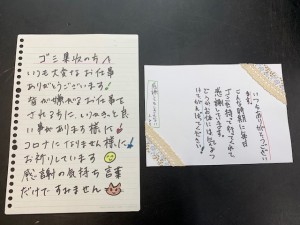 ゴミ収収の方へ
いつも大変なお仕事
ありがとうございます!
皆が嫌れるお仕事を
される方に、いつもきっと良
い事がありますように
コロナになりません様に
お祈りしています
感謝の気持ち言葉
だけですみません
いつもありがとうござい
ます。
こんな時期に毎日
ゴミを持って行ってくれて
感謝してます。
どうかお体には気をつけて